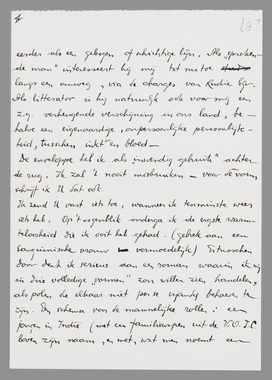 eerder als een gebogen of schichtige lijn. Als "spreken-
de man" interesseert hij mij tot nu toe
langs een omweg, via de charges van Rudie bijv.
Als litterator is hij natuurlijk ook voor mij een
z.g. verheugende verschijning in ons land, be-
halve een eigenaardige, onpersoonlijke persoonlijk-
heid, tusschen inkt en bloed –
De enveloppe heb ik als inwendig gebruik achter
de rug. Ik zal 't nooit misbruiken – voor de vorm
schrijf ik U dat ook.
Ik zend U vast iets toe, wanneer ik tenminste weer
iets heb. Op 't oogenblik onderga ik de ergste warm-
teloosheid die ik ooit heb gehad. (gebrek aan een
sanguinische vrouw vermoedelijk) Ertusschen
door denk ik verder aan een roman waarin ik
in drie volledige "vormen" zou willen zien handelen,
als polen die elkaar niet per se vijandig behoeven te
zijn. Een schema voor de mannelijke rollen: een
jongen in Indië (met een familiewapen uit de V.O.I.C.
boven zijn naam, en met, wat men noemt een